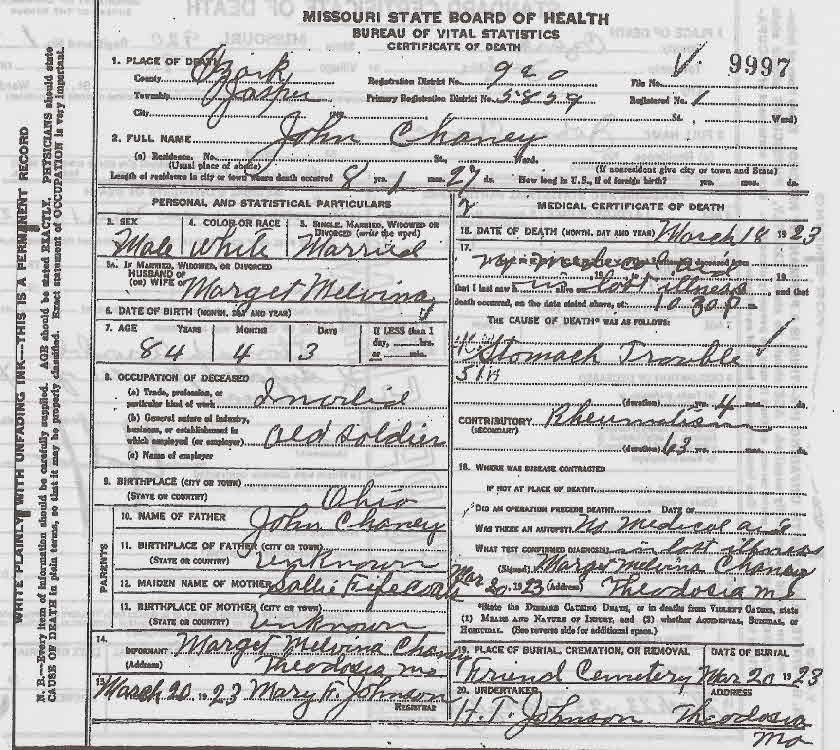 MISSOURI STATE BOARD OF HEALTH
BUREAU OF VITAL STATISTICS
CERTIFICATE OF DEATH
1. PLACE OF DEATH
County Ozark Registration District No. 920 File No. 9997
Township Jasper Primary Registration District No. 5859 Registered No. 1
City St. Ward)
2. FULL NAME John Chaney
(a) Residence. No. St. Ward.
(Usual place of abode) (If nonresident give city or town and State)
Length of residence in city or town where death occurred 8 yrs. 1 mos. 27 ds. How long in U.S., if of foreign birth? yrs. mos. ds.
PERSONAL AND STATISTICAL PARTICULARS
3. SEX 4. COLOR OR RACE 5. SINGLE, MARRIED, WIDOWED OR DIVORCED (write the word)
Male White Married
5A. IF MARRIED, WIDOWED, OR DIVORCED
HUSBAND OF
(OR) WIFE OF Marget Melvina
6. DATE OF BIRTH (MONTH, DAY AND YEAR)
7. AGE YEARS MONTHS DAYS If LESS than 1 day, ....hrs. or ....min.
84 4 3
8. OCCUPATION OF DECEASED
(a) Trade, profession, or
particular kind of work
(b) General nature of industry,
business, or establishment in
which employed (or employer) old Soldier
(c) Name of employer
9. BIRTHPLACE (CITY OR TOWN)
(STATE OR COUNTRY) Ohio
PARENTS
10. NAME OF FATHER John Chaney
11. BIRTHPLACE OF FATHER (CITY OR TOWN)
(STATE OR COUNTRY) Unknown
12. MAIDEN NAME OF MOTHER Sallie
13. BIRTHPLACE OF MOTHER (CITY OR TOWN)
(STATE OR COUNTRY) Unknown
14.
INFORMANT Marget Melvina Chaney
(Address) Theodosia Mo
15. March 20 1923 Mary F. Johnson
REGISTRAR
MEDICAL CERTIFICATE OF DEATH
16. DATE OF DEATH (MONTH, DAY AND YEAR) March 18 1923
17.
No Medical aid
that I last saw h alive on in last illness and that
death occurred, on the date stated above, at 10 30 P
THE CAUSE OF DEATH* WAS AS FOLLOWS:
Stomach Trouble
(duration) yrs. 4 mos. ds.
CONTRIBUTORY Rheumatism
(SECONDARY)
(duration) 63 yrs. mos. ds.
18. WHERE WAS DISEASE CONTRACTED
IF NOT AT PLACE OF DEATH?
DID AN OPERATION PRECEDE DEATH? DATE OF
WAS THERE AN AUTOPSY? No Medical aid
WHAT TEST CONFIRMED DIAGNOSIS? in last illness
(Signed) Marget Melvina Chaney
Mar 20, 1923 (Address) Theodosia Mo
*State the DISEASE CAUSING DEATH, or in deaths from VIOLENT CAUSES, state
(1) MEANS AND NATURE OF INJURY, and (2) whether ACCIDENTAL, SUICIDAL, or
HOMICIDAL. (See reverse side for additional space.)
19. PLACE OF BURIAL, CREMATION, OR REMOVAL DATE OF BURIAL
Friend Cemetery Mar 20 1923
20. UNDERTAKER ADDRESS
H. T. Johnson Theodosia
Mo
WRITE PLAINLY WITH UNFADING INK—THIS IS A PERMANENT RECORD
N. B.—Every item of information should be carefully supplied. AGE should be stated EXACTLY. PHYSICIANS should state
CAUSE OF DEATH in plain terms, so that it may be properly classified. Exact statement of OCCUPATION is very important.